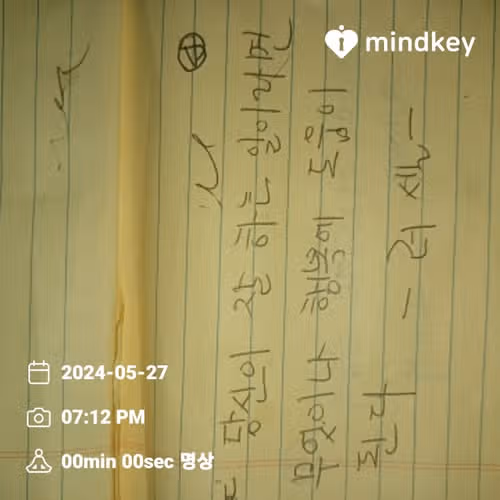 mindkey
당신이 잘 하는 일이라면
무엇이나 행복에 도움이
된다
- 러셀 -
2024-05-27
07:12 PM
00min 00sec 명상